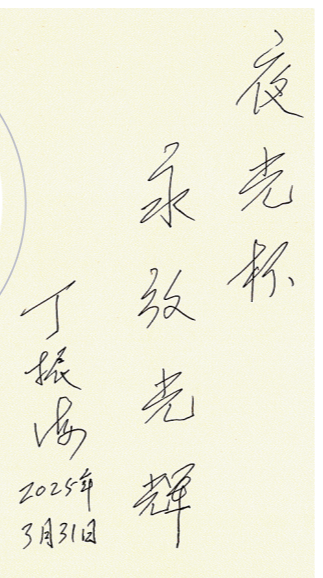 夜光杯
永放光辉
丁振海
2025年
3月31日